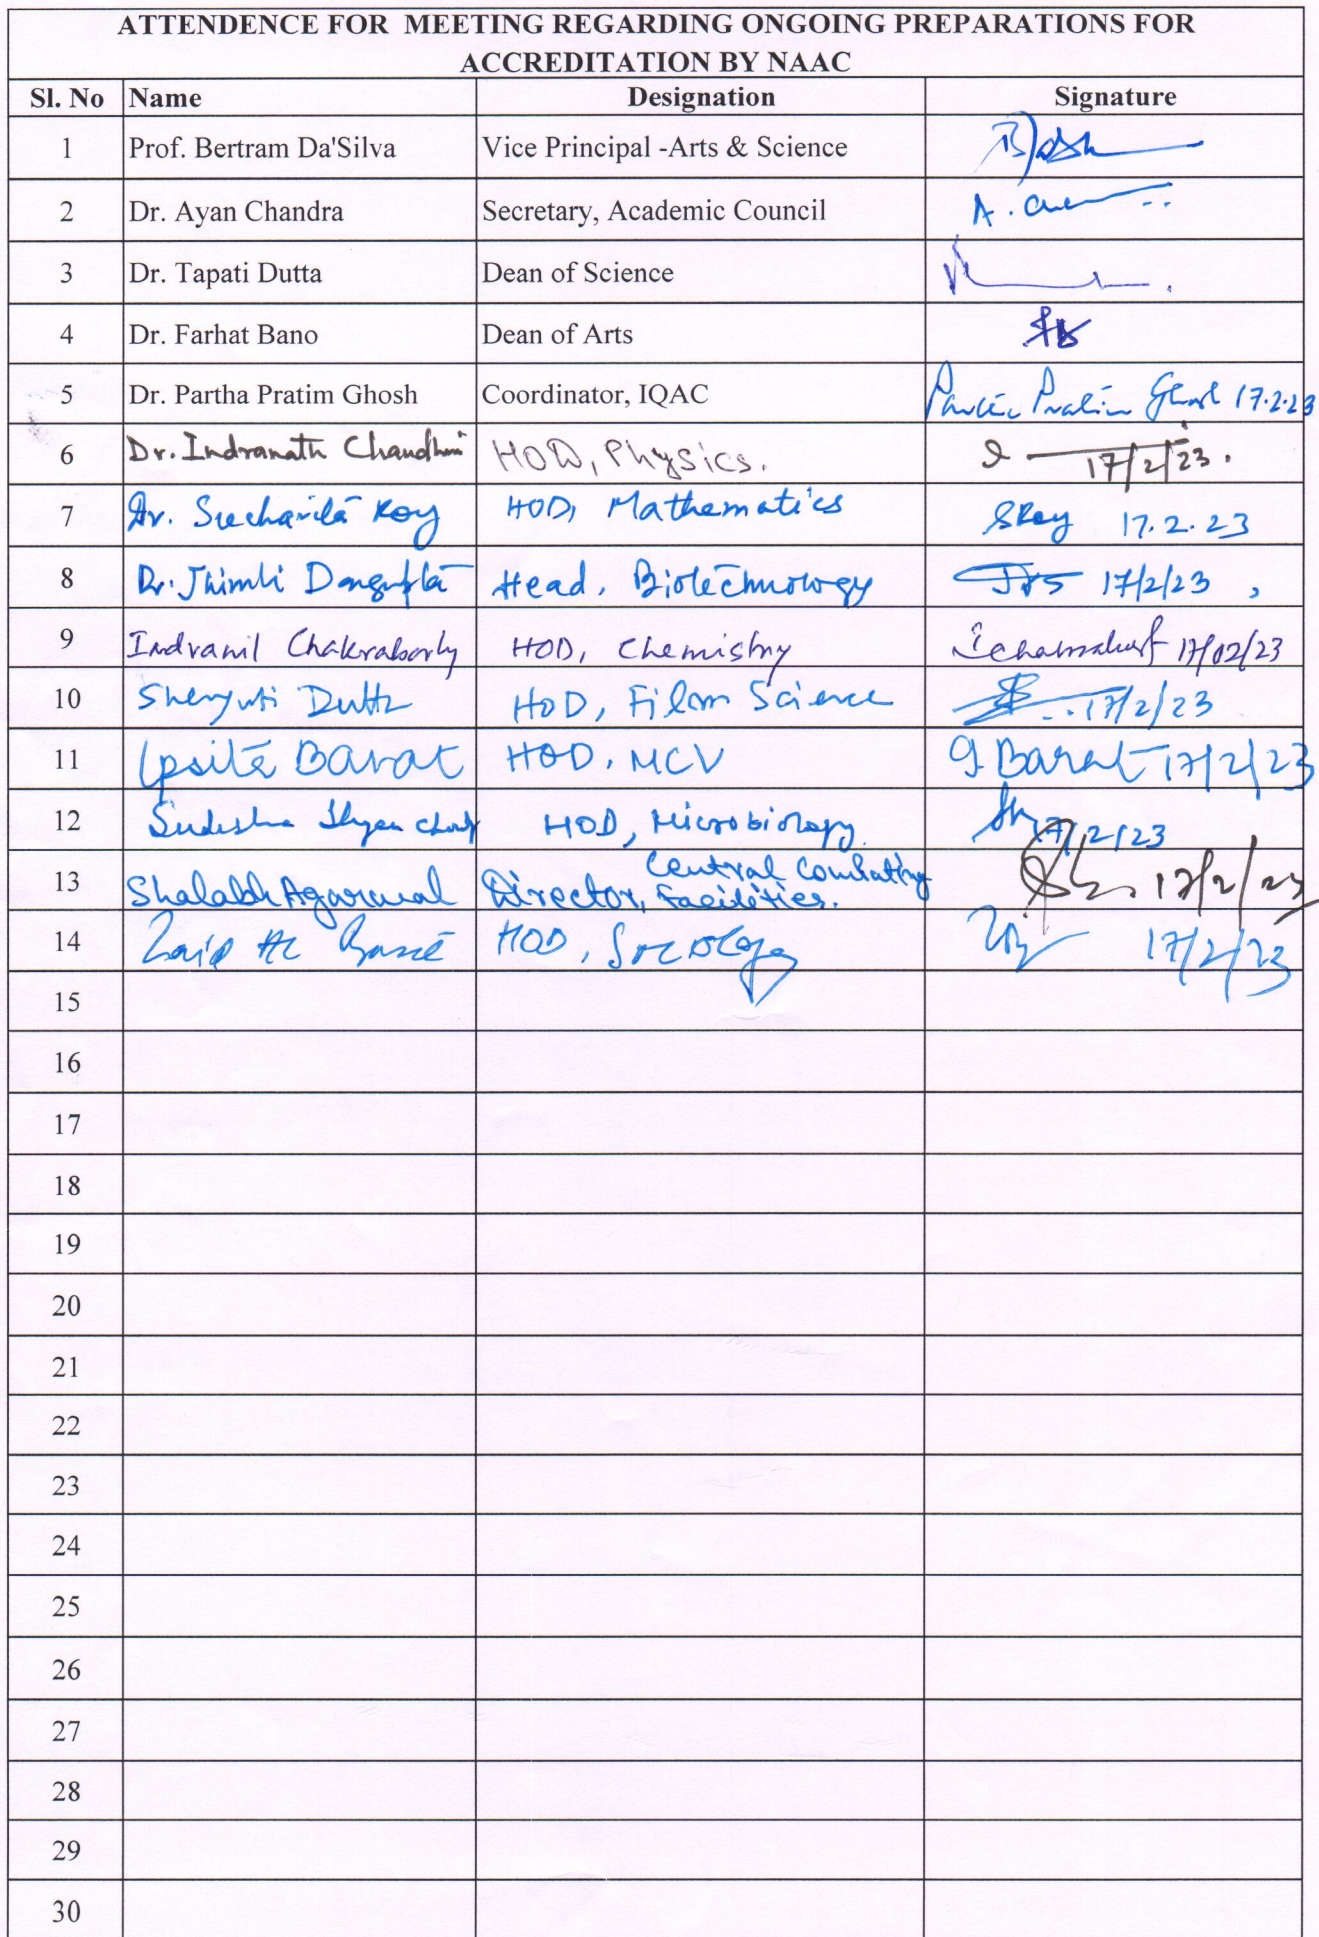 ATTENDENCE FOR MEETING REGARDING ONGOING PREPARATIONS FOR
ACCREDITATION BY NAAC
Sl. No Name Designation Signature
1 Prof. Bertram Da'Silva Vice Principal -Arts & Science
2 Dr. Ayan Chandra Secretary, Academic Council A.
3 Dr. Tapati Dutta Dean of Science
4 Dr. Farhat Bano Dean of Arts
5 Dr. Partha Pratim Ghosh Coordinator, IQAC Partha Pratim Ghosh 17.2.23
6 Dr. Indranath Chaudhuri HOD, Physics. 17/2/23.
7 Dr. Sucharita Roy HOD, Mathematics SRoy 17.2.23
8 Dr. Jhimli Dasgupta Head, Biotechnology 17/2/23
9 Indranil Chakraborty HOD, Chemistry 17/02/23
10 Dutta HOD, Film Science 17/2/23
11 Ipsita Barat HOD, MCV I Barat 17/2/23
12 Sudeshna HOD, Microbiology 17/2/23
13 Shalabh Agarwal Director, Central Computing Facilities. 17/2/23
14 Zaid Al HOD, Sociology 17/2/23
15
16
17
18
19
20
21
22
23
24
25
26
27
28
29
30